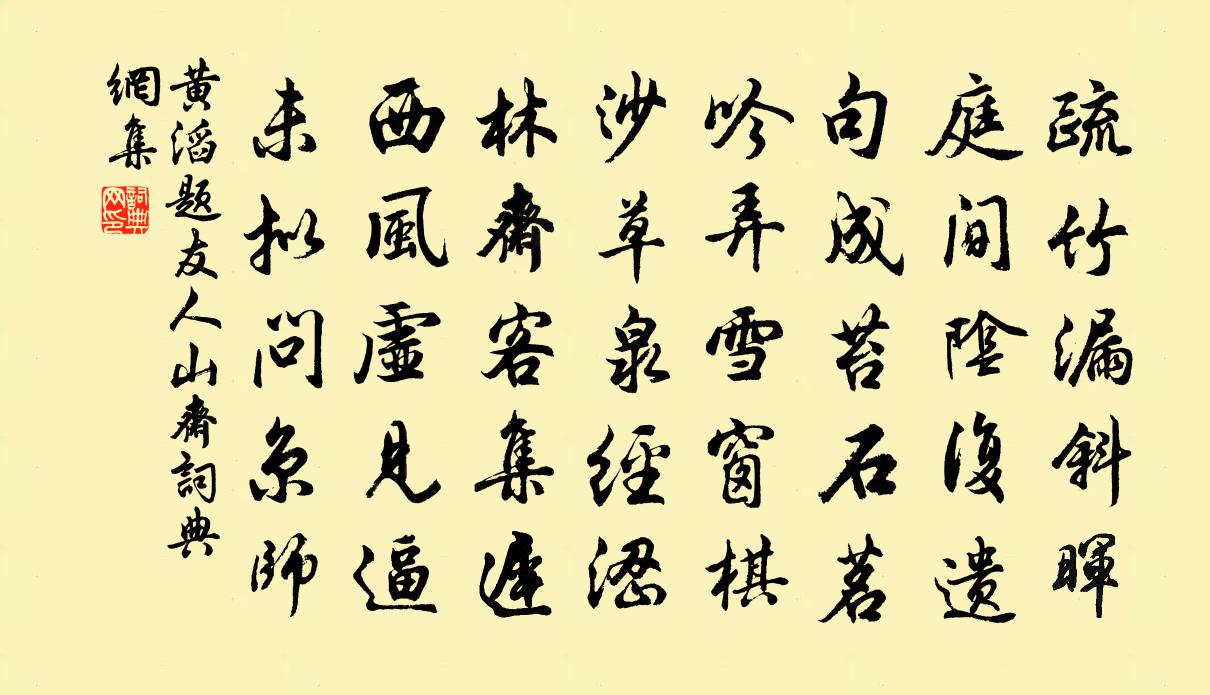 疏竹漏斜暉
庭間陰復遺
句成苔石茗
吟弄雪窗棋
沙草泉經澀
林齋客集遲
西風虛見逼
未擬問京師
黃滔題友人山齋詞典
網集
詞典網印